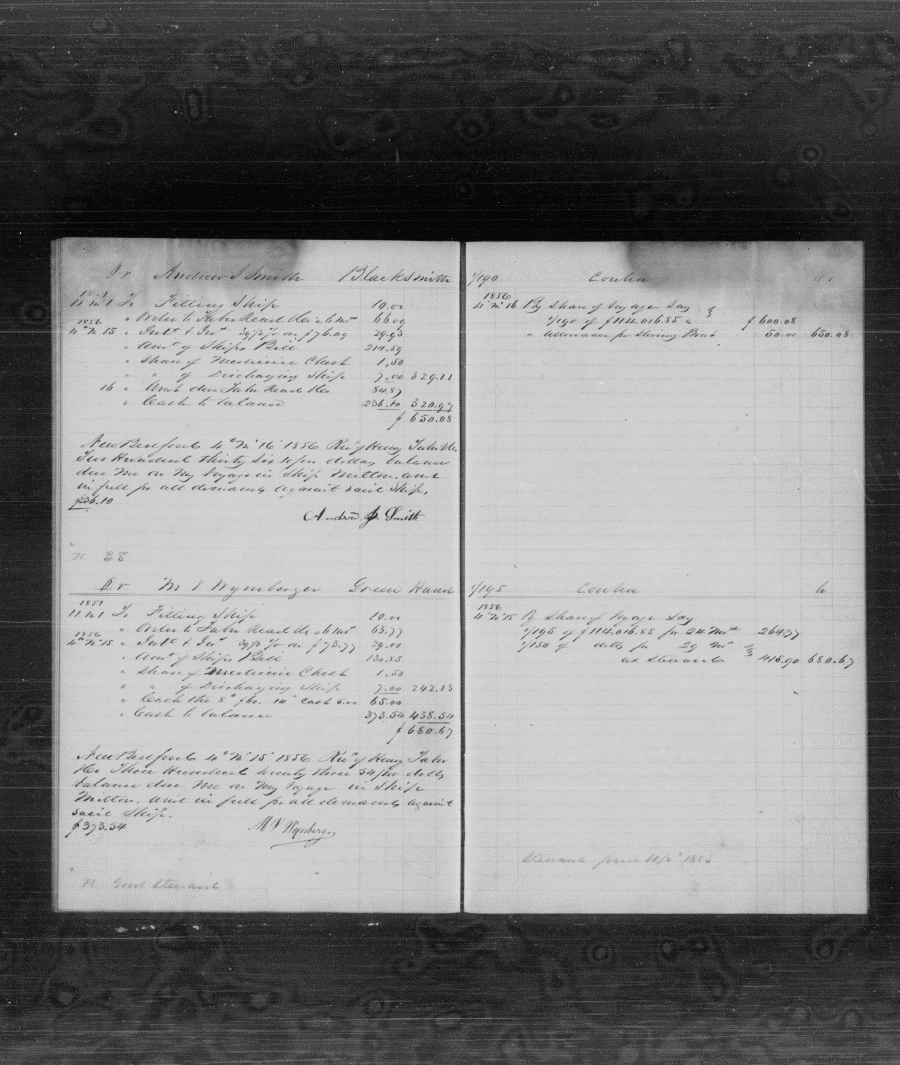 Dr Andrew J Smith Blacksmith
1851
11 m 1 To Fitting Ship 10.00
" Order to Taber Read &Co
1856
4 m 15 " Int & Ins
" Amt of Ships Bill 214.59
" Share of Medicine Chest 1.50
" " of Discharging Ship 7.00 329.11
16 " Amt due Taber Read &Co 84.87
" Cash to balance 236.10 320.97
$ 650.08
New Bedford 4 m 16 1856 Recd of Henry Taber &Co
Two Hundred thirty six 10/100 dollars balance
due me on my Voyage in Ship Milton, and
in full for all demands against said Ship,
$236.10
Andrew J. Smith
1/190 Contra Cr
1856
4 m 16 By Share of Voyage Lay
1/190 of $114.016.85 $ 600.08
" Allowance for Steering Boat 50.00 650.08
Dr M V Wynberger Green Hand
1851
11 m 1 To Fitting Ship 10.00
" Order to Taber Read &Co 63.77
1856
4 m 15 " Int & Ins
" Amt of Ships Bill
" Share of Medicine Chest 1.50
" " of Discharging Ship 7.00 242.13
" Cash 65.00
" Cash to balance 373.54 438.54
$ 680.67
New Bedford 4 m 15 1856 Recd of Henry Taber
&Co Three Hundred seventy three 54/100 dolls
balance due me on my Voyage in Ship
Milton, and in full for all demands against
said Ship.
$373.54
M V Wynberger
Good Steward
1/195 Contra Cr
1856
4 m 15 By Share of Voyage Lay
1/195 of $114.016.85 for 24 Mos 264.77
1/150 of dolls for 29 Mos
as Steward 415.90 680.67
Steward from